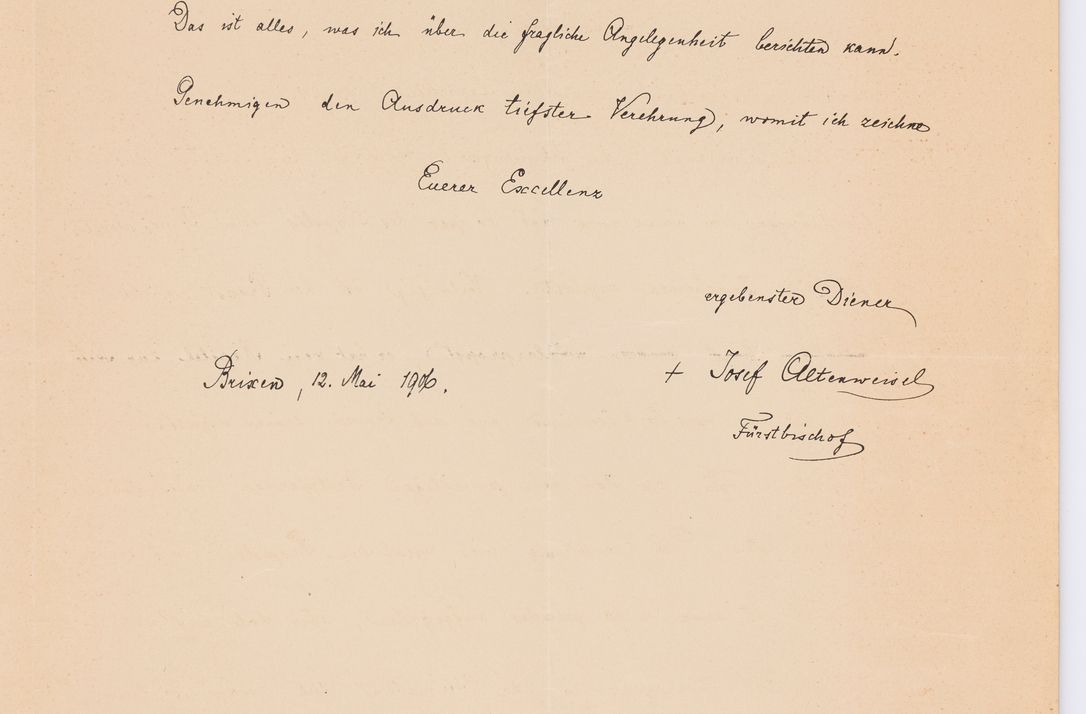 Das ist alles, was ich über die fragliche Angelegenheit berichten kann.
Genehmigen den Ausdruck tiefster Verehrung, womit ich zeichne
Euerer Excellenz
ergebenster Diener
Brixen, 12. Mai 1906.
+ Josef Altenweisel
Fürstbischof